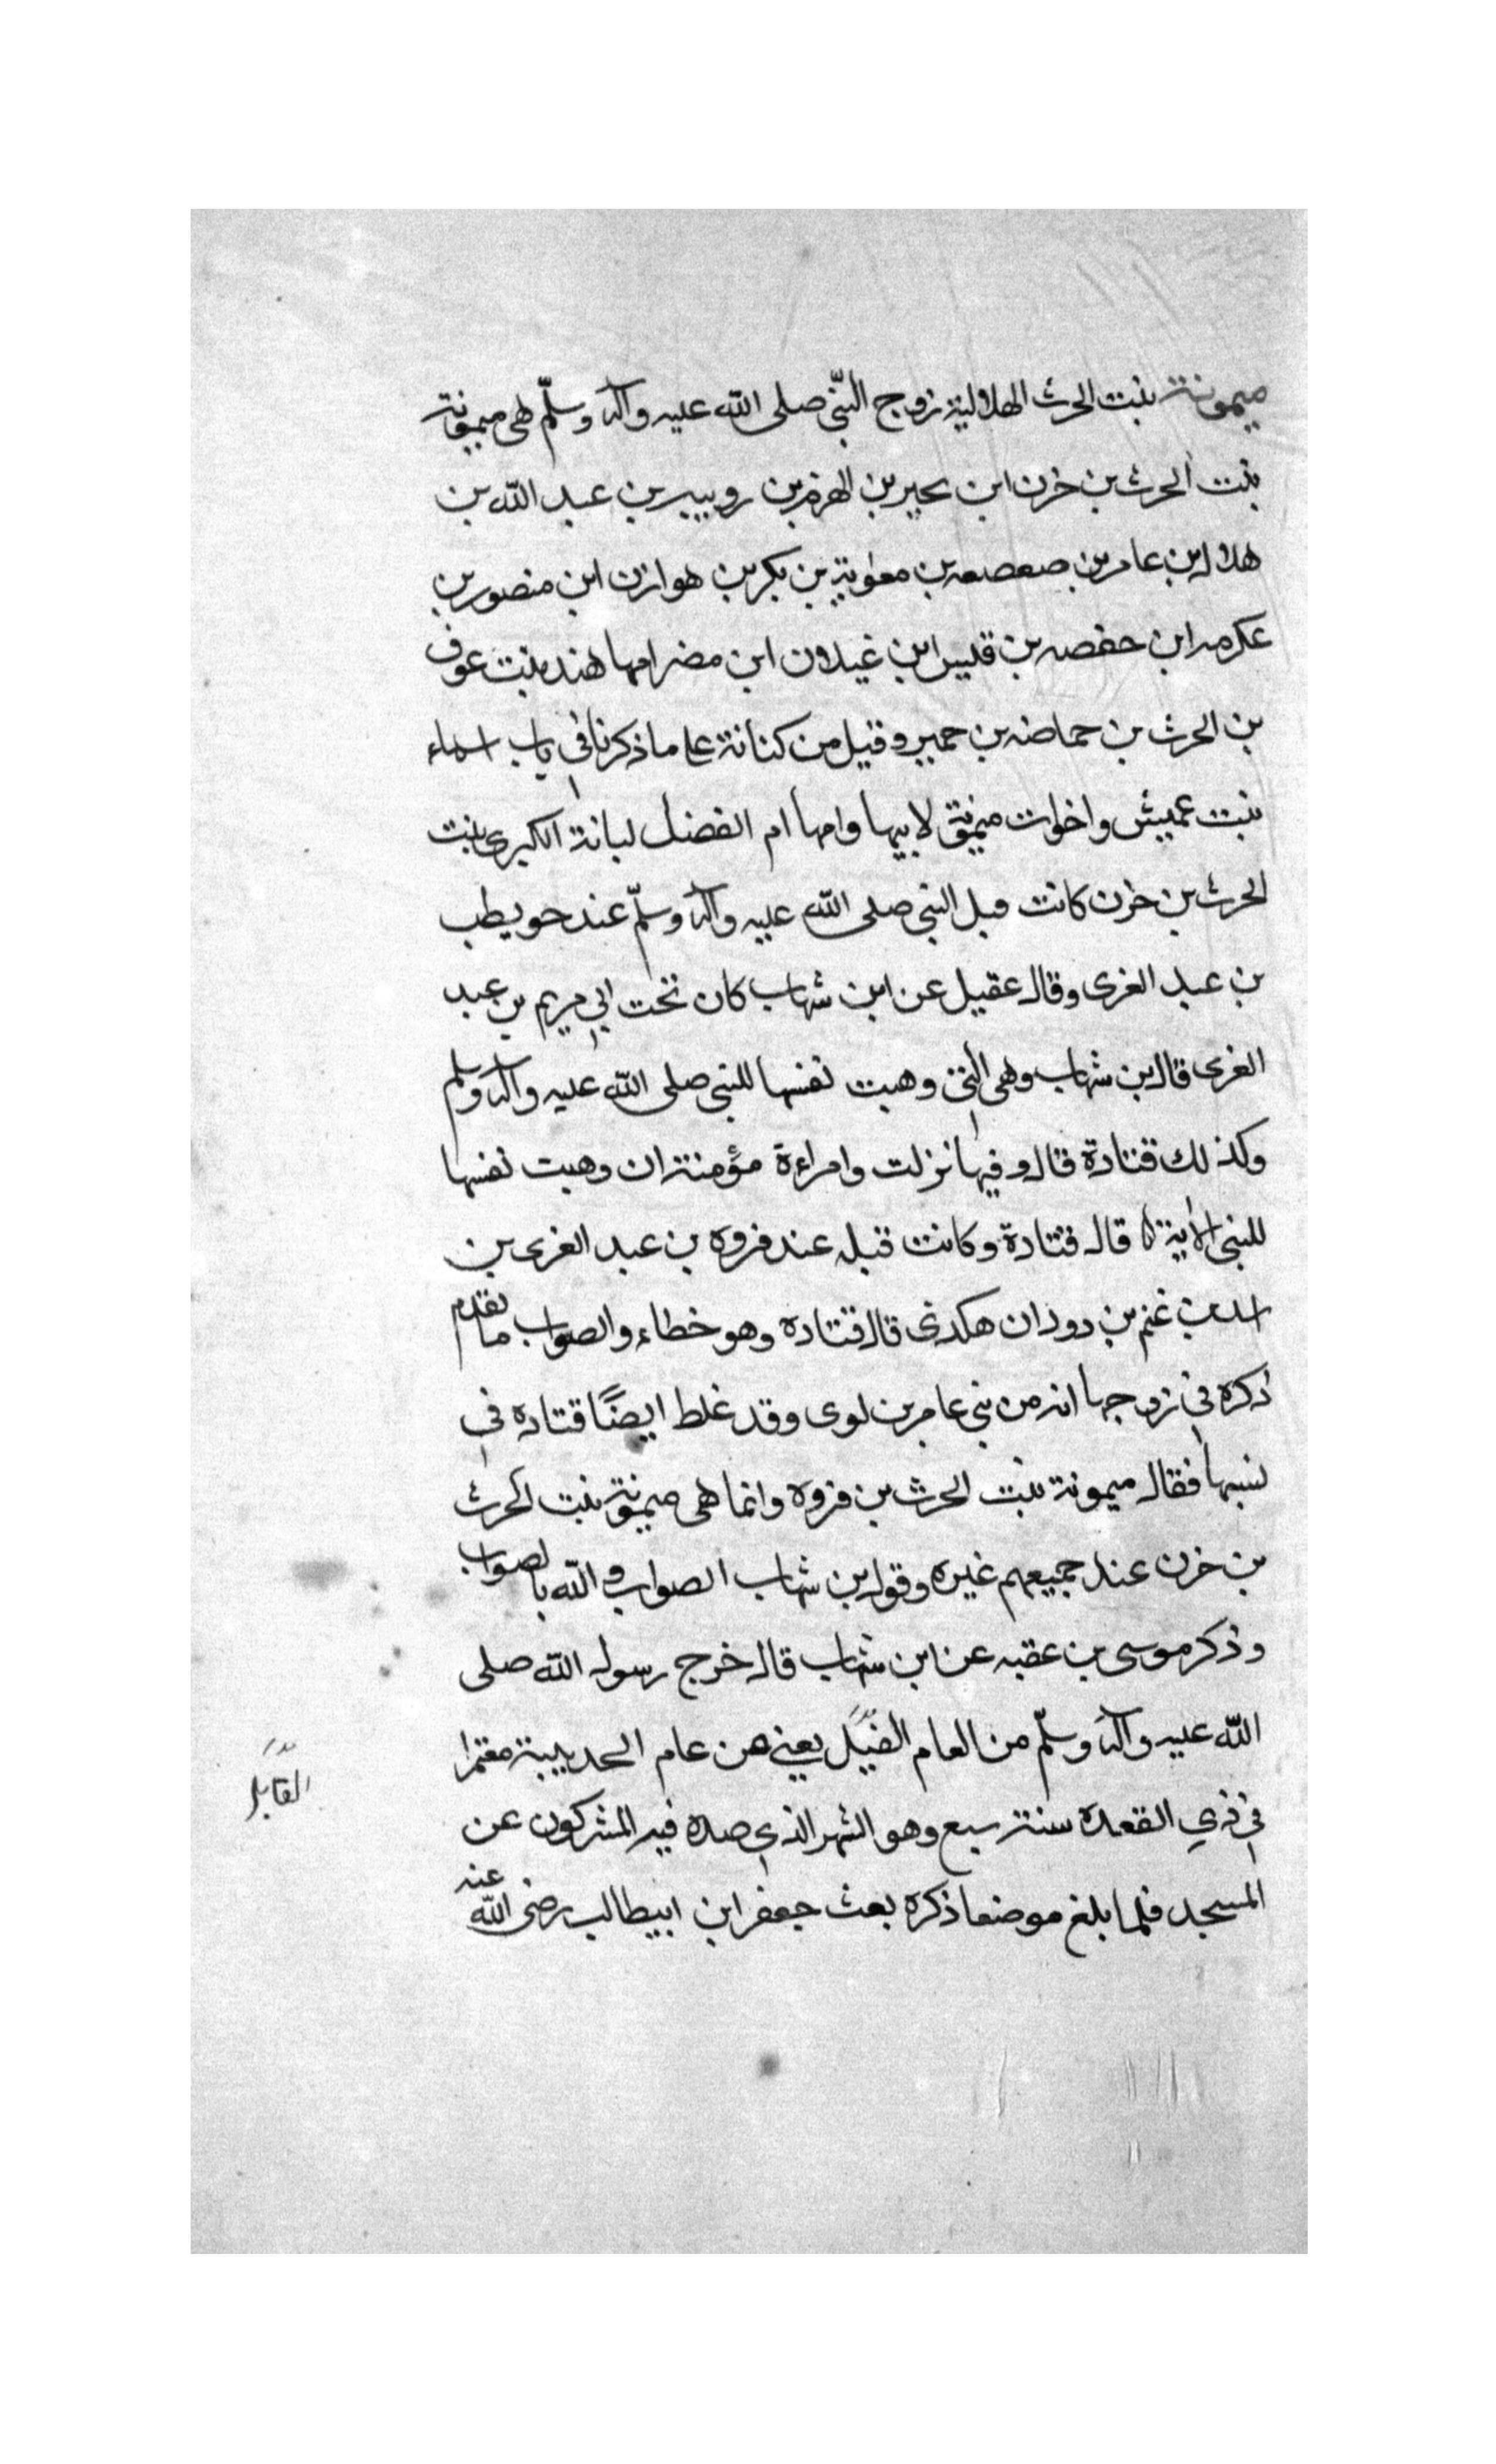 ميمونة بنت الحرث الهلالية زوج النبّي صلى الله عليه وآله وسلّم هى ميمونة
بنت الحرث بن خزن ابن بحير بن الهزم بن روبيبر بن عبد الله بن
هلال ابن عامر بن صعصعه بن معوية بن بكر بن هوازن ابن منصور بن
عكرمه ابن حفصه بن قليس ابن غيلان ابن مضر امها هند بنت عوف
بن الحرث بن حماضه بن حمير وقيل من كنانة على ما ذكرنا في باب اسماء
بنت عميش واخوات ميمونة لابيها وامها ام الفضل لبانة الكبرى بنت
الحرث بن خزن كانت قبل النبى صلى الله عليه وآله وسلّم عند حويطب
بن عبد الغرى وقال عقيل عن ابن شهاب كان تحت ابي مريم بن عبد
الغرى قال بن شهاب وهى التى وهبت نفسها للنبى صلى الله عليه وآله وسلم
وكذلك قتادة قال وفيها نزلت وامراءة مؤمنة ان وهبت نفسها
للنبى الاية قال قتادة وكانت قبله عند فروه بن عبد الغرى بن
اسد بن غنم بن دودان هكدى قال قتاده وهو خطاء والصواب ما تقدم
ذكره في زوجها انه من بني عامر بن لوى وقد غلط ايضًا قتاده في
نسبها فقال ميمونة بنت الحرث بن فروه وانما هى ميمونة بنت الحرث
بن خزن عند جميعهم غيره وقول بن شهاب الصواب والله بالصواب
وذكر موسى بن عقبه عن ابن شهاب قال خرج رسول الله صلى
الله عليه وآله وسلّم من العام القيل يعني من عام الحديبية معتمرا
القابل
في ذي القعدة سنة سبع وهو الشهر الذي صده فيه المشركون عن
المسجد فلما بلغ موضعا ذكره بعث جعفر ابن ابيطالب رضى الله عنه